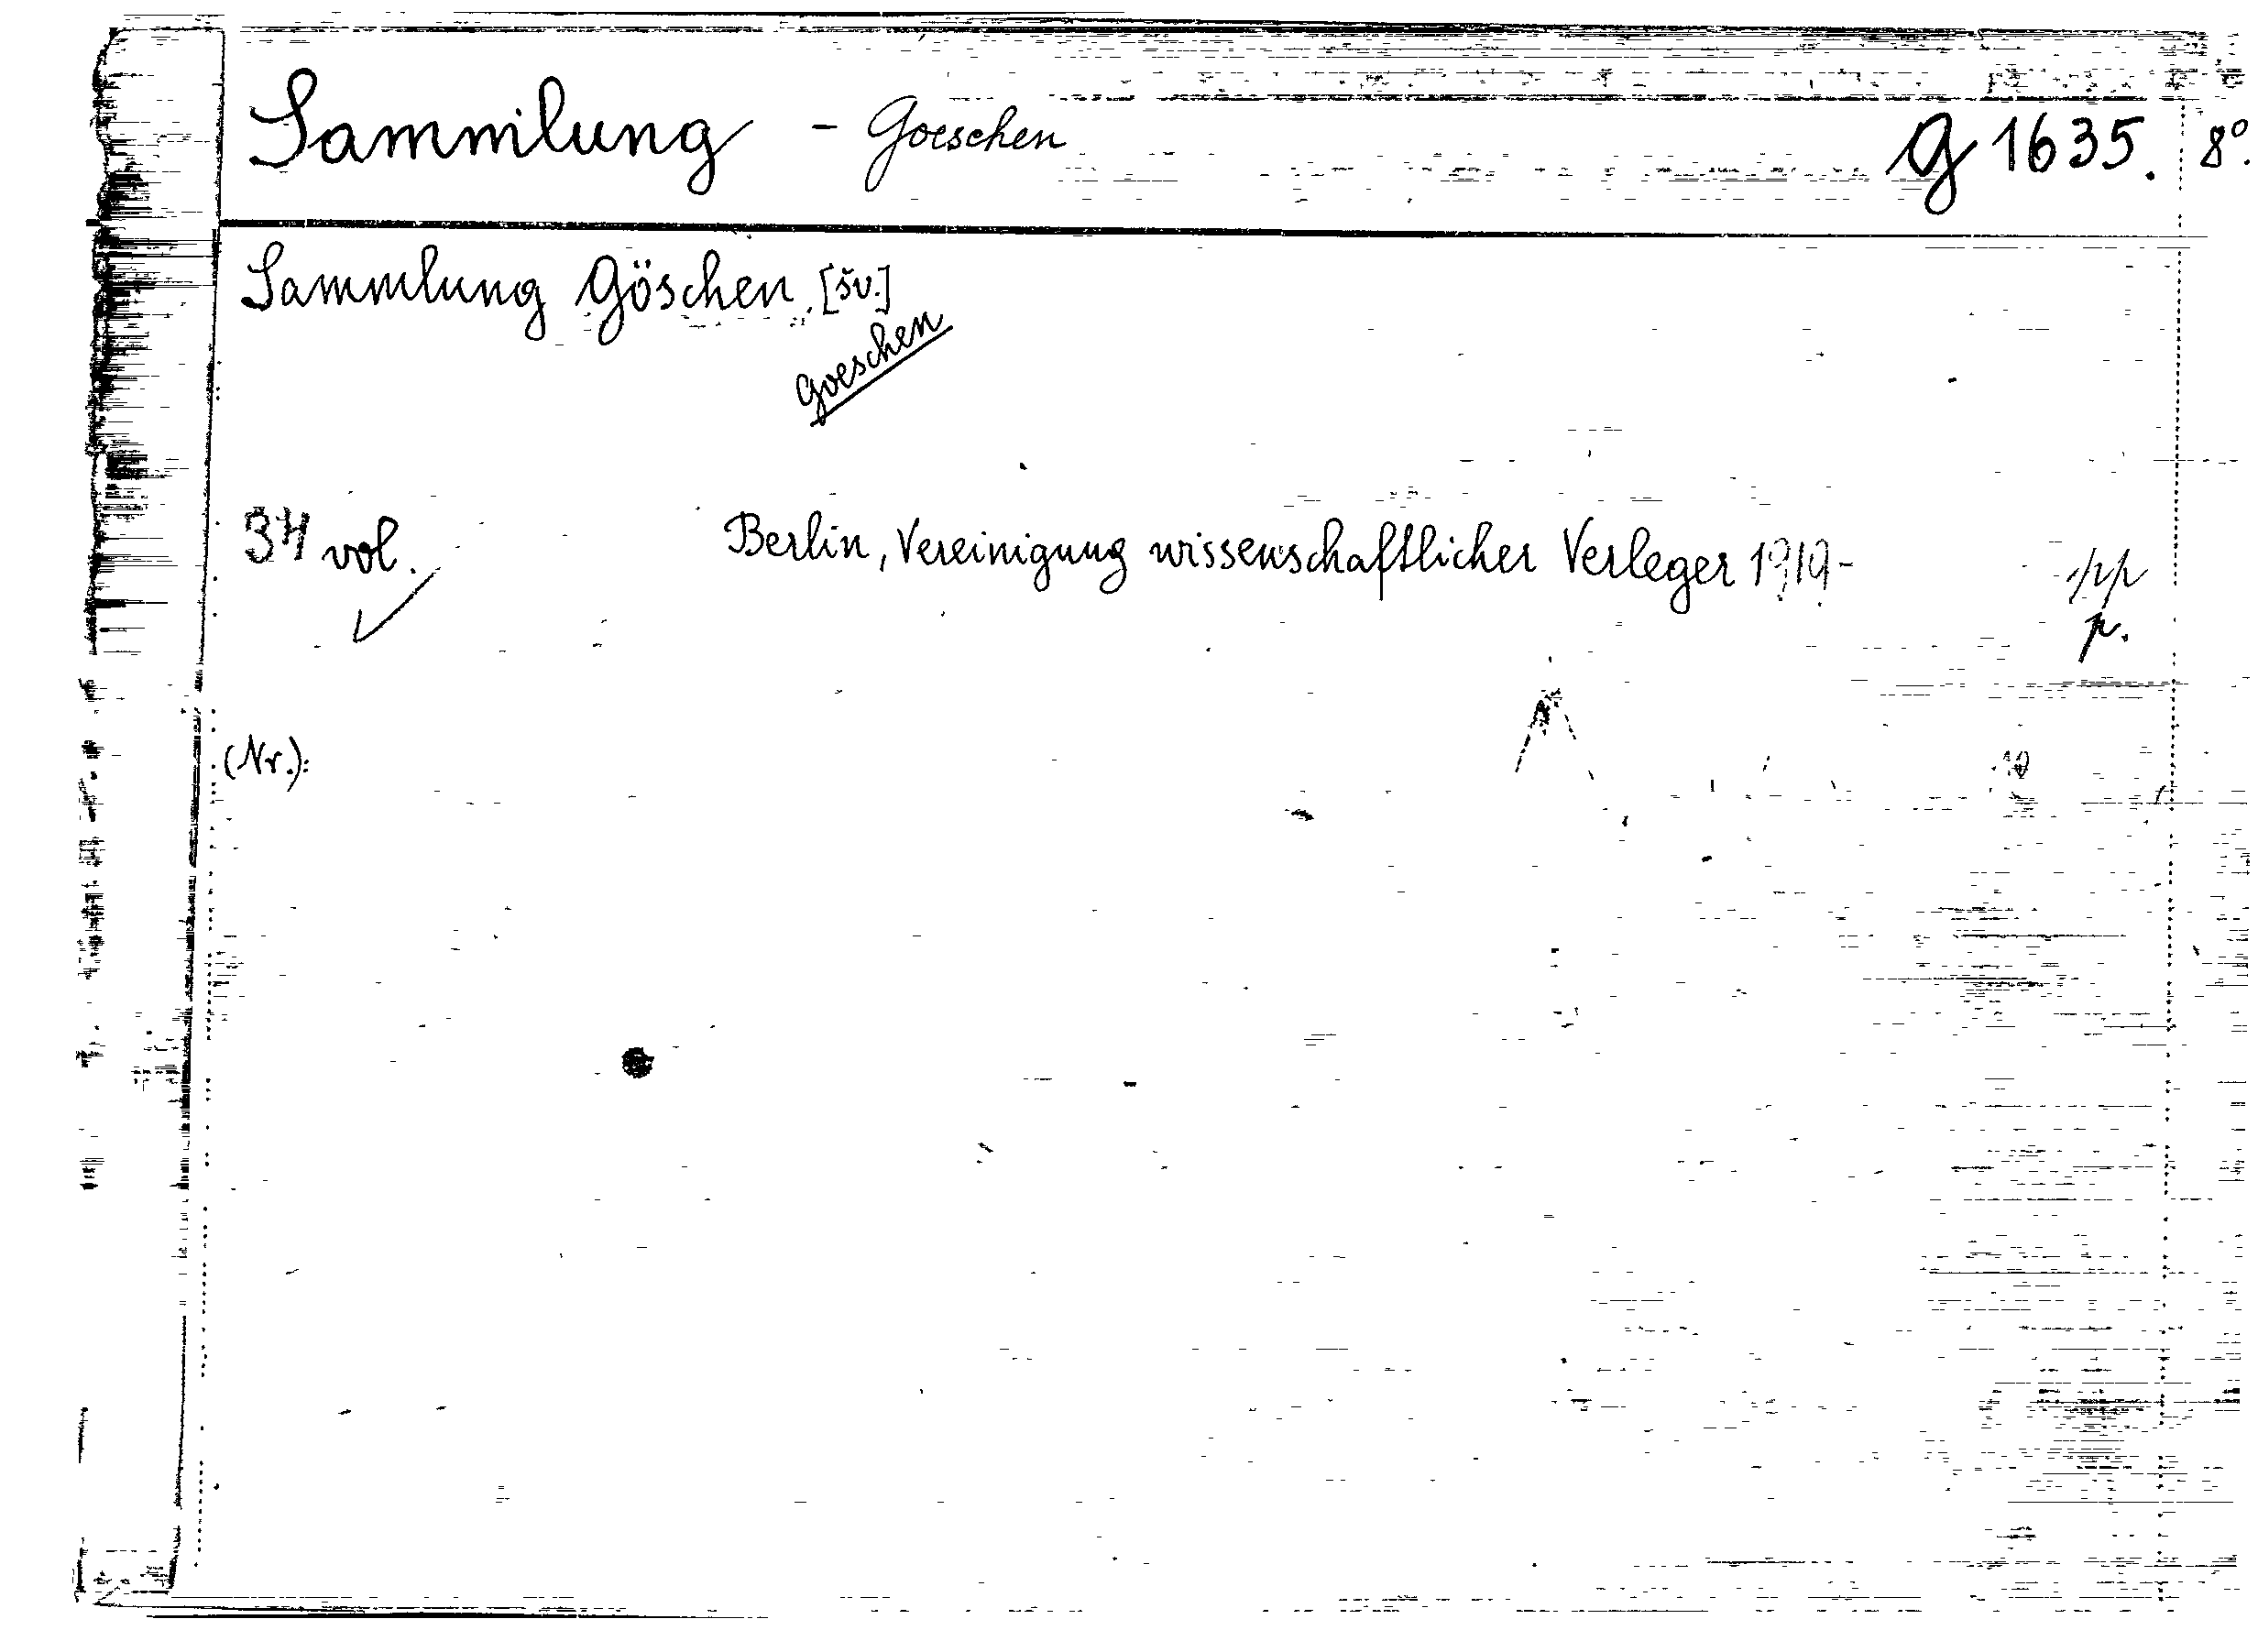 Sammlung - Goeschen g 1635. 8°.
Sammlung Göschen. [šv.]
Goeschen
34 vol. Berlin, Vereinigung wissenschaftlicher Verleger 1919-
p.
(Nr.):